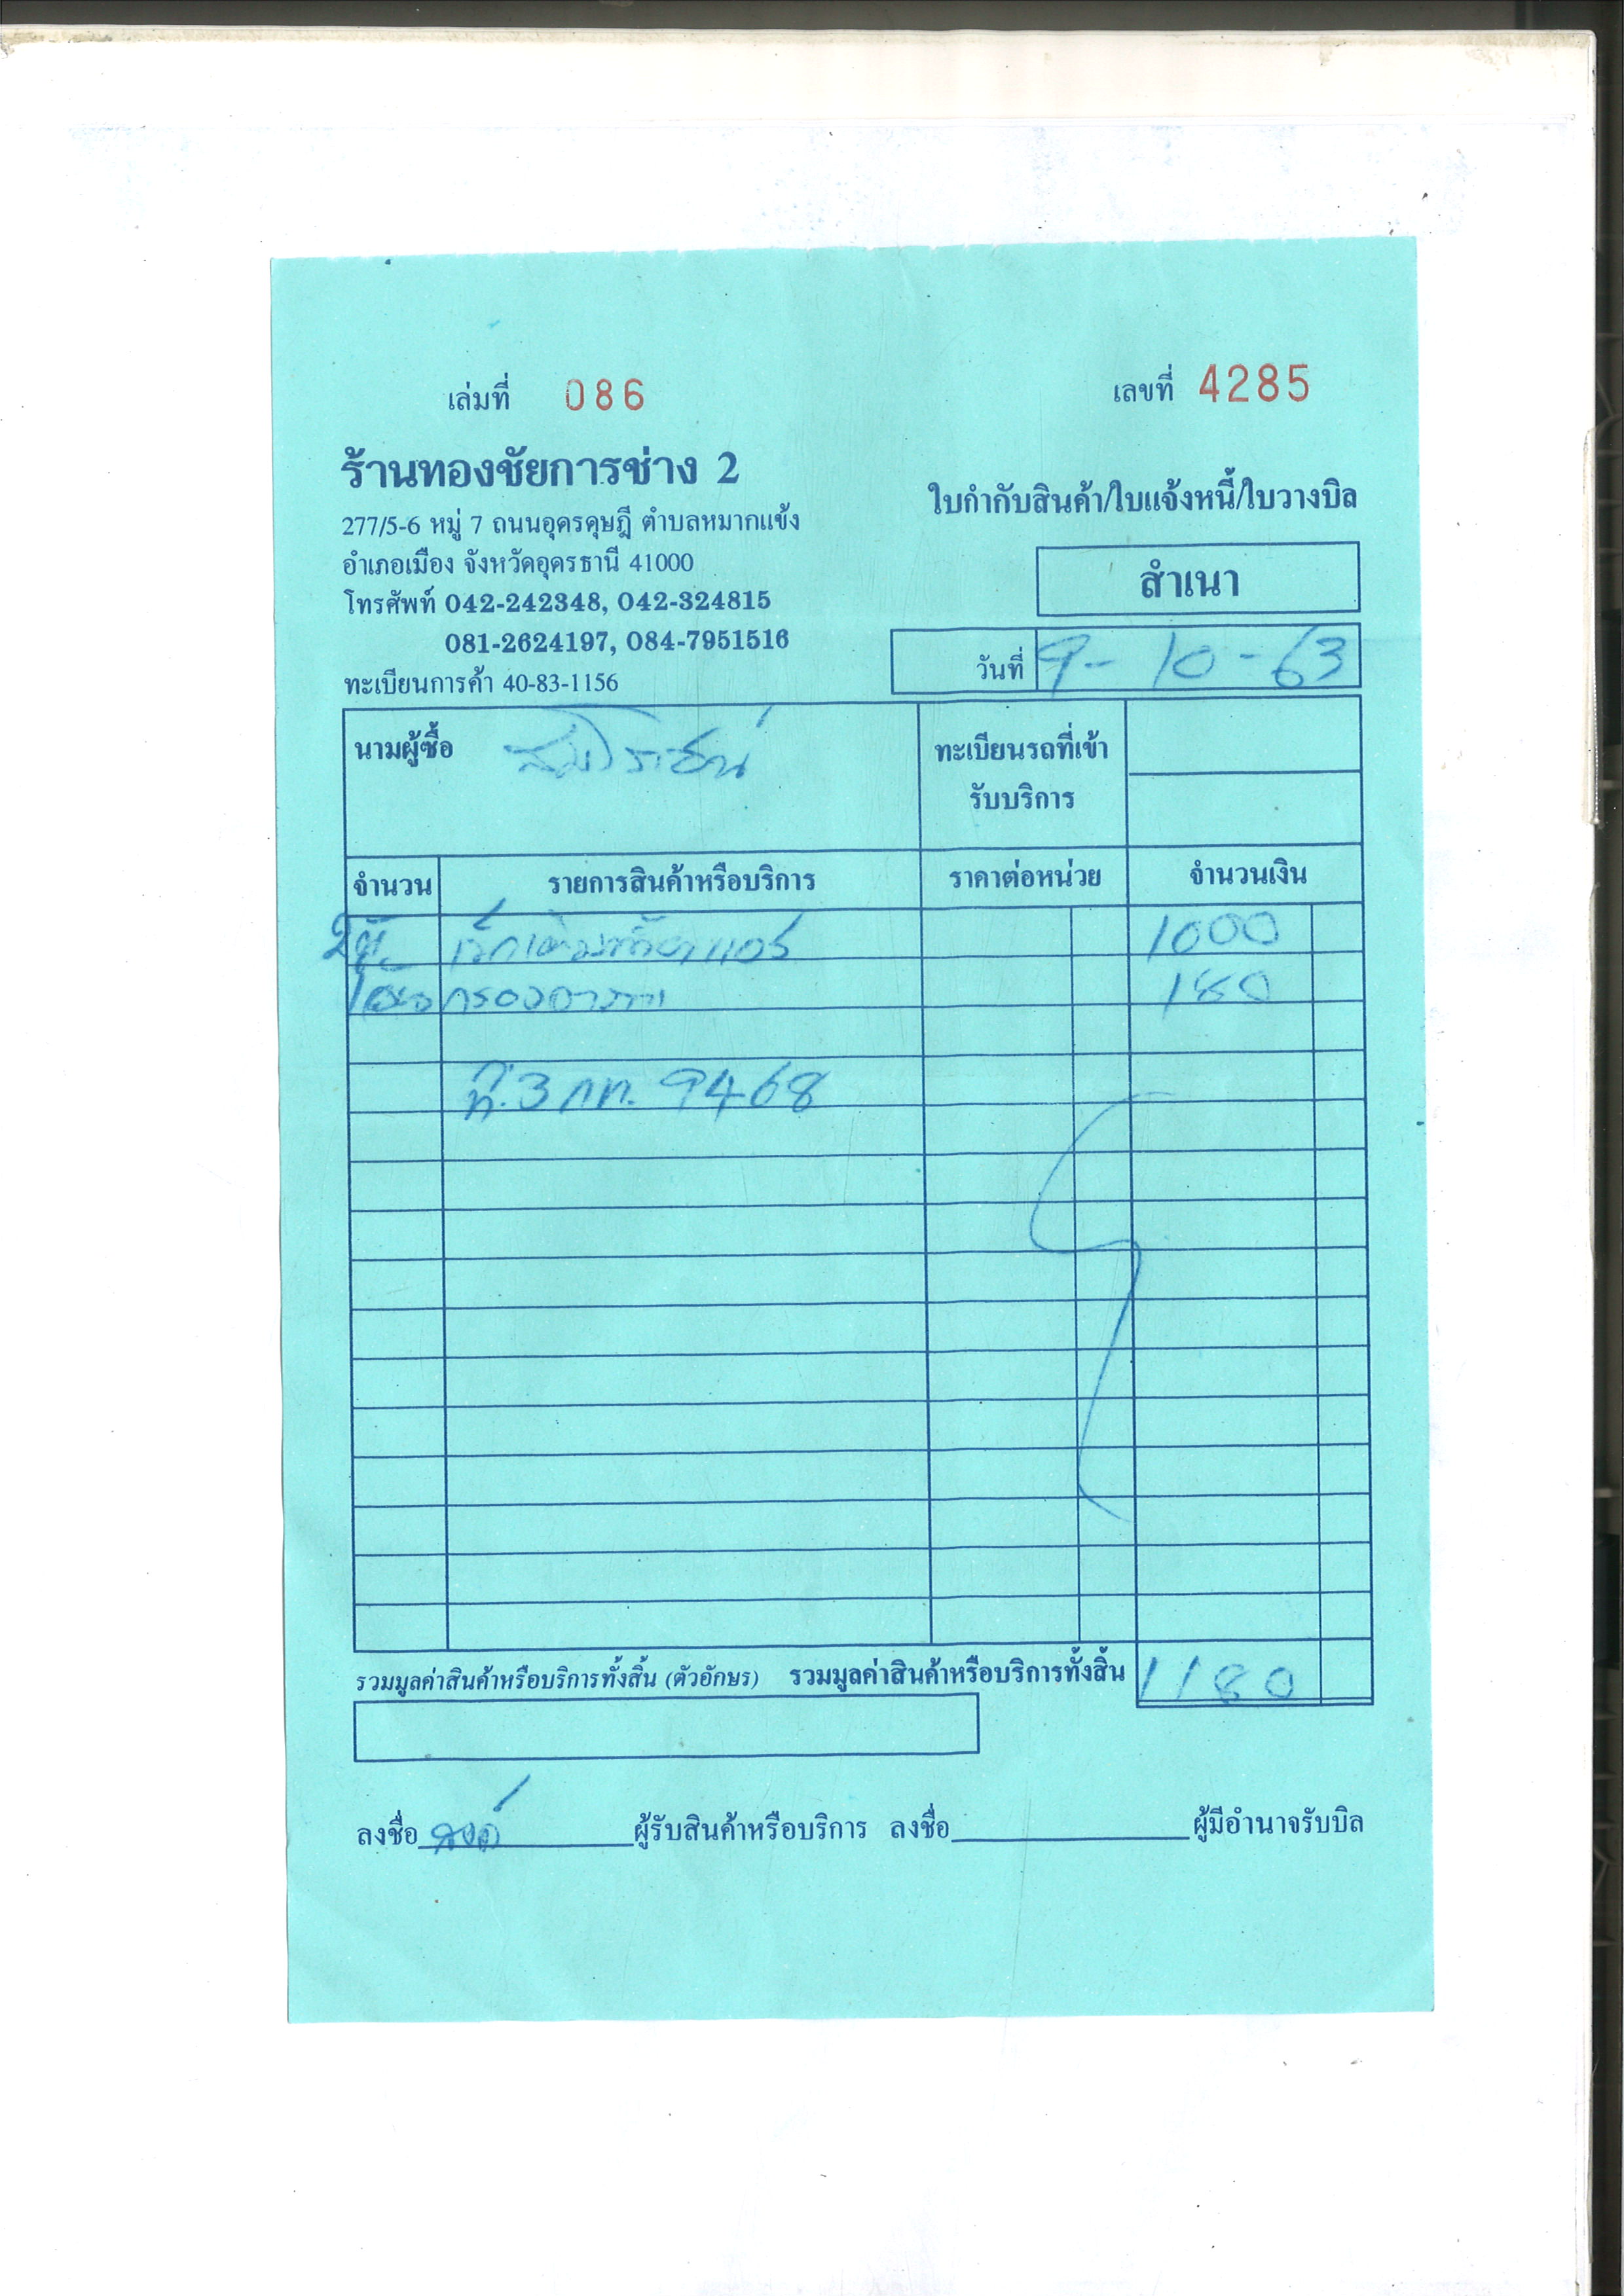 เล่มที่ 086
เลขที่ 4285
ร้านทองชัยการช่าง 2
277/5-6 หมู่ 7 ถนนอุดรดุษฎี ตำบลหมากแข้ง
อำเภอเมือง จังหวัดอุดรธานี 41000
โทรศัพท์ 042-242348, 042-324815
081-2624197, 084-7951516
ทะเบียนการค้า 40-83-1156
ใบกำกับสินค้า/ใบแจ้งหนี้/ใบวางบิล
สำเนา
วันที่ 9-10-63
นามผู้ซื้อ
ทะเบียนรถที่เข้า
รับบริการ
จำนวน รายการสินค้าหรือบริการ ราคาต่อหน่วย จำนวนเงิน
1000
กรองอากาศ 180
ที่.3 กท. 9468
รวมมูลค่าสินค้าหรือบริการทั้งสิ้น (ตัวอักษร) รวมมูลค่าสินค้าหรือบริการทั้งสิ้น 1180
ลงชื่อ ผู้รับสินค้าหรือบริการ ลงชื่อ ผู้มีอำนาจรับบิล